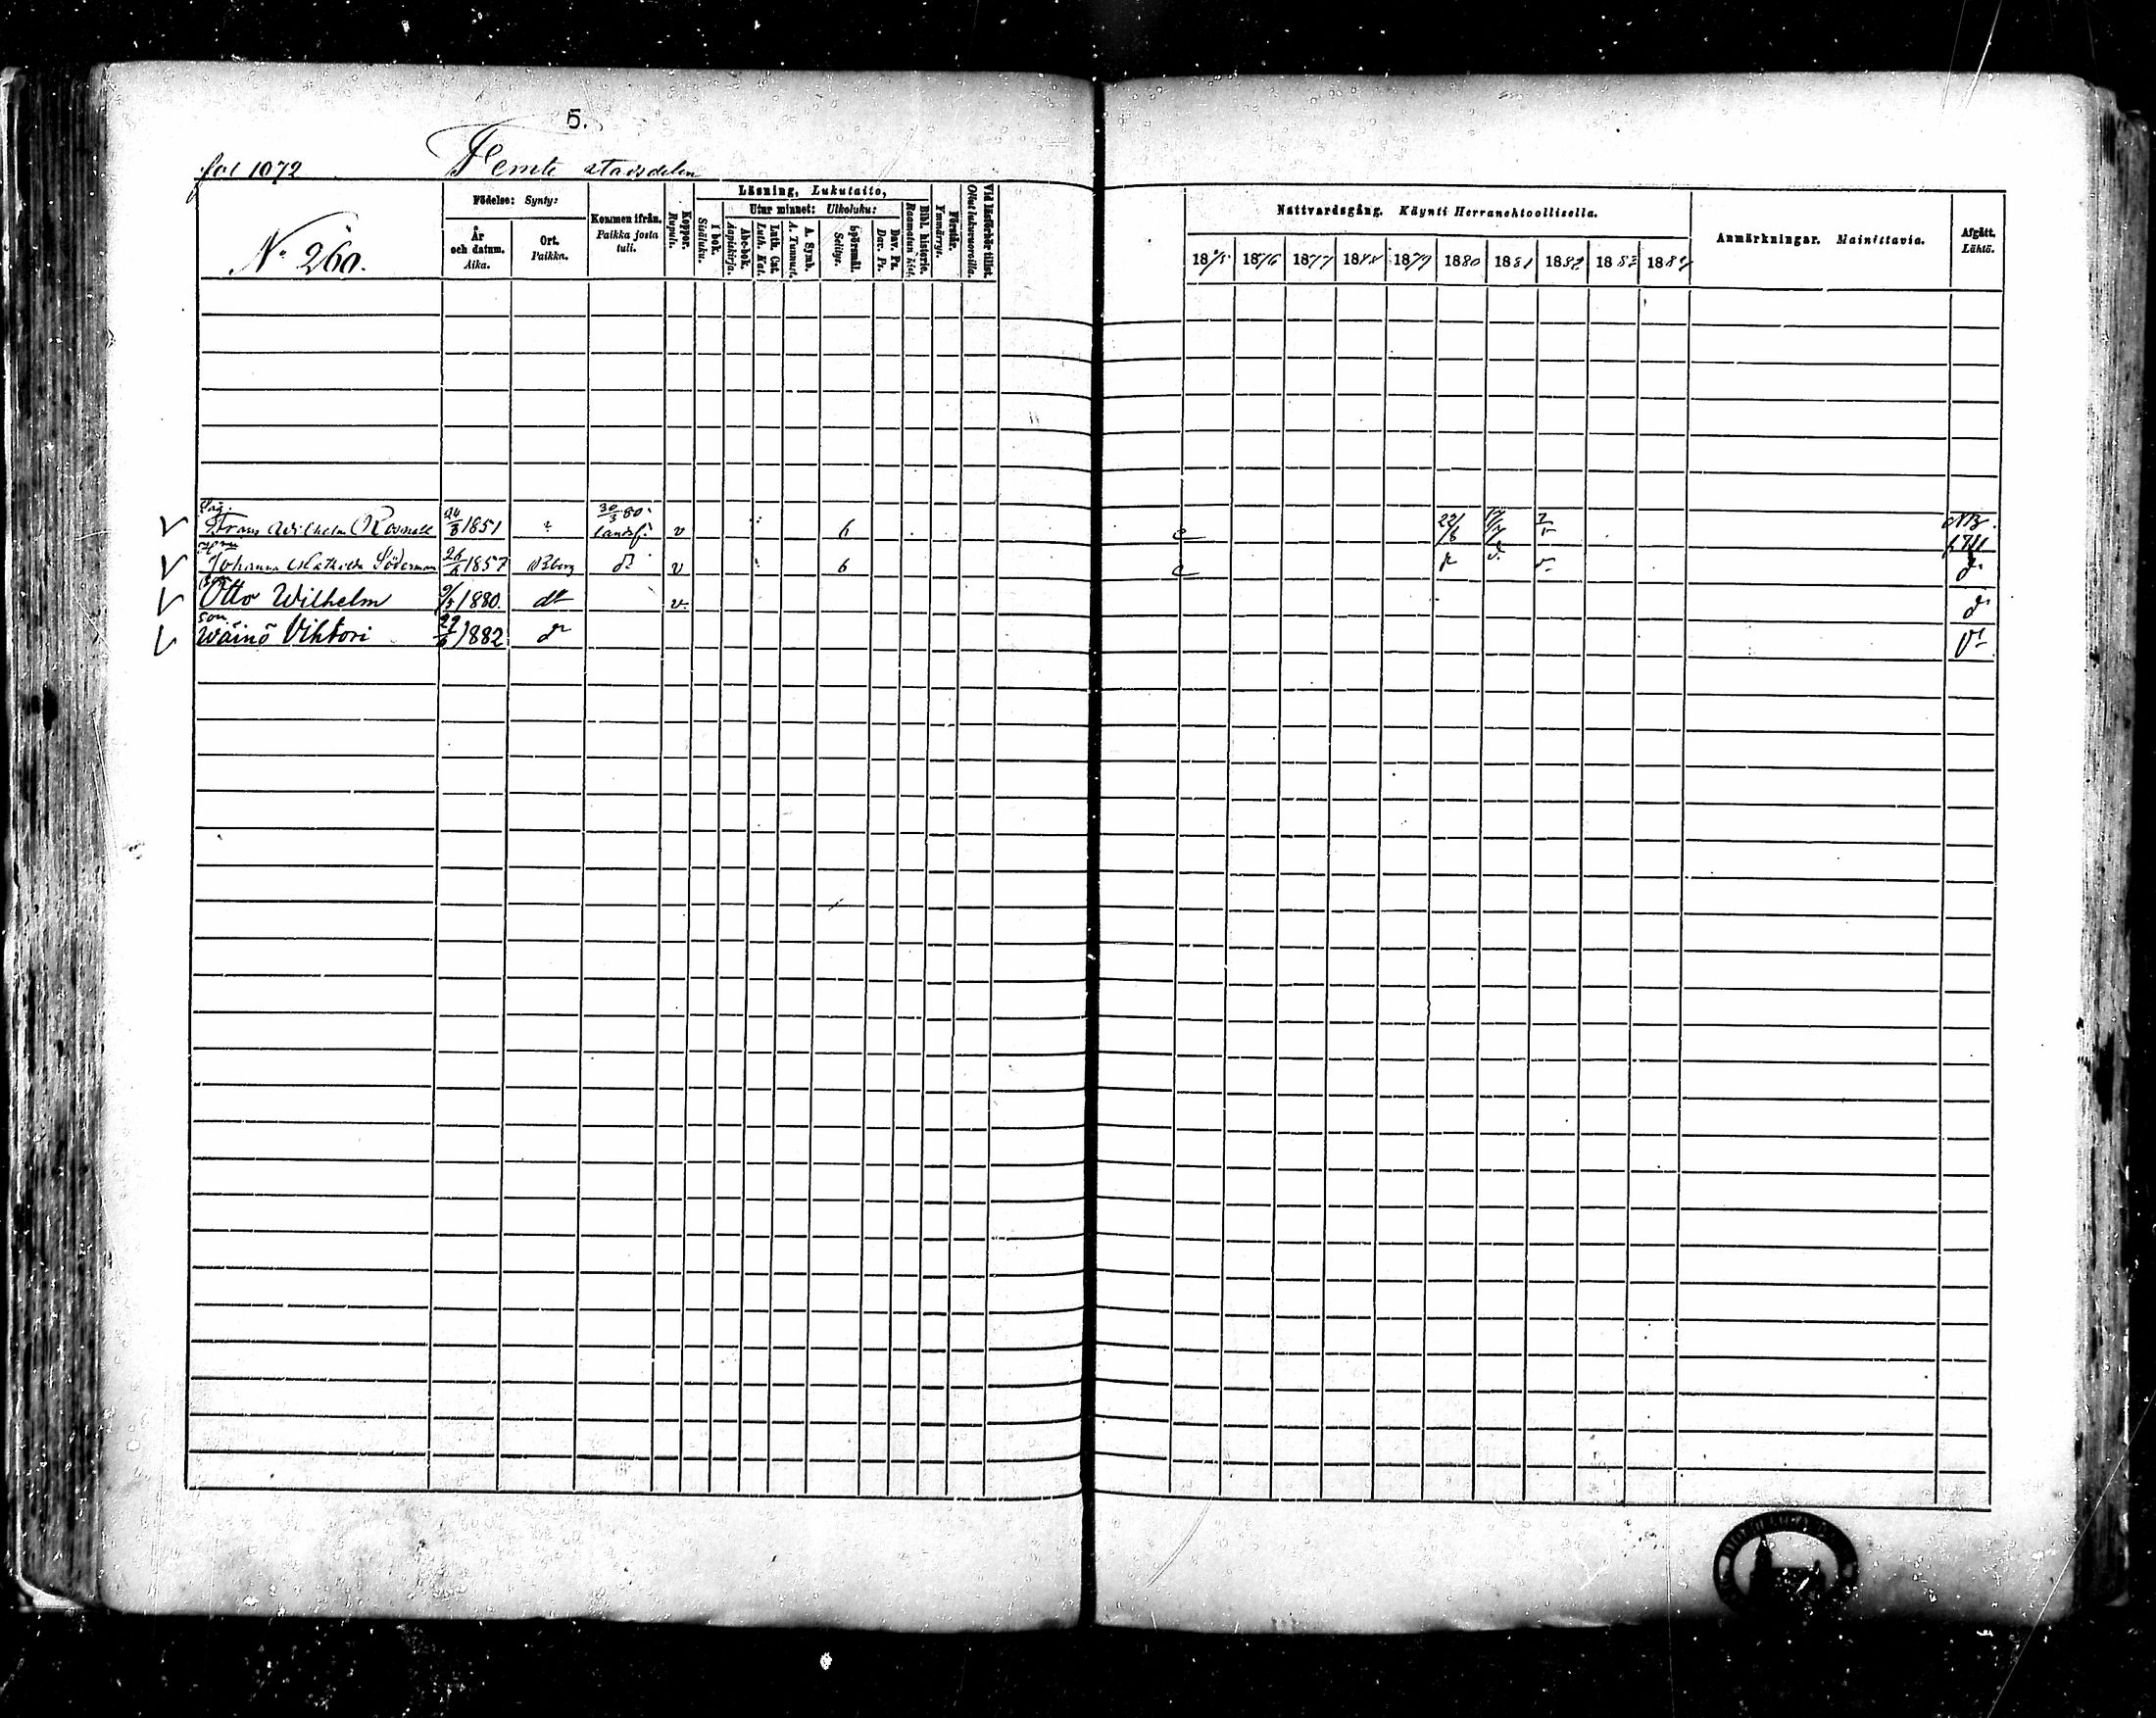 5.
fol 1072
Femte stadsdelen
No 260.
Födelse: Synty:
År och datum. Aika.
Ort. Paikka.
Kommen ifrån. Paikka josta tuli.
Koppor. Rupuli.
Läsning, Lukutaito,
I bok. Sisäluku.
Utur minnet: Ulkoluku:
Abc-bok. Aapiskirja.
Luth. Cat. Luth. Kat.
A. Symb. A. Tunnust.
Spörsmål. Selitys.
Dav. Ps. Dav. Ps.
Bibl. historie. Raamatun hist.
Förstår. Ymmärrys.
Vid läsförhör tillst. Ollut lukuvuoroilla.
Nattvardsgång. Käynti Herranehtoollisella.
1875 1876 1877 1878 1879 1880 1881 1882 1883 1884
Anmärkningar. Mainittavia.
Afgått. Lähtö.
Frans Wilhelm 24/8 1851 30/3 80 landsf. v 6 22/6
Johanna Mathilda Söderman 26/6 1857 Bborg d:o v 6
Otto Wilhelm 9/5 1880. d:o v
son
Wäinö Vihtori 1882 d:o